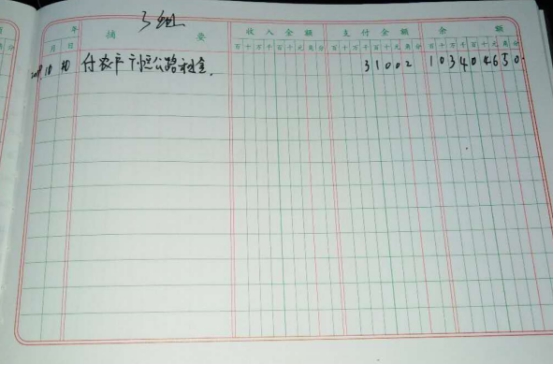 3组
年 摘 要 收入金额 支付金额 余 额
月 日 百十万千百十元角分 百十万千百十元角分 百十万千百十元角分
10 付农户 公路租金. 31002 103404650